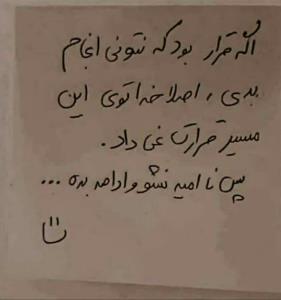 اگه قرار بود که نتونی انجام
بدی ، اصلا خدا توی این
مسیر قرارت نمی داد .
پس نا امید نشو و ادامه بده ...